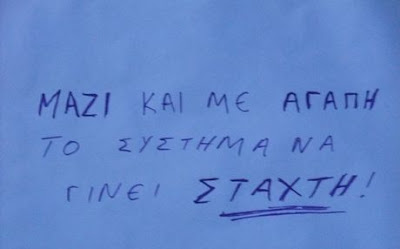 ΜΑΖΙ ΚΑΙ ΜΕ ΑΓΑΠΗ
ΤΟ ΣΥΣΤΗΜΑ ΝΑ
ΓΙΝΕΙ ΣΤΑΧΤΗ!